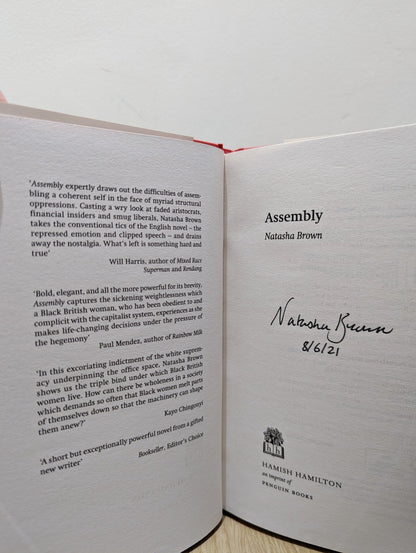 'Assembly expertly draws out the difficulties of assem-
bling a coherent self in the face of myriad structural
oppressions. Casting a wry look at faded aristocrats,
financial insiders and smug liberals, Natasha Brown
takes the conventional tics of the English novel – the
repressed emotion and clipped speech – and drains
away the nostalgia. What's left is something hard and
true'
Will Harris, author of Mixed Race
Superman and Rendang
'Bold, elegant, and all the more powerful for its brevity,
Assembly captures the sickening weightlessness which
a Black British woman, who has been obedient to and
complicit with the capitalist system, experiences as she
makes life-changing decisions under the pressure of
the hegemony'
Paul Mendez, author of Rainbow Milk
'In this excoriating indictment of the white suprem-
acy underpinning the office space, Natasha Brown
shows us the triple bind under which Black British
women live. How can there be wholeness in a society
which demands so often that Black women melt parts
of themselves down so that the machinery can shape
them anew?'
Kayo Chingonyi
'A short but exceptionally powerful novel from a gifted
new writer'
Bookseller, Editor's Choice
Assembly
Natasha Brown
Natasha Brown
8/6/21
hh
HAMISH HAMILTON
an imprint of
PENGUIN BOOKS